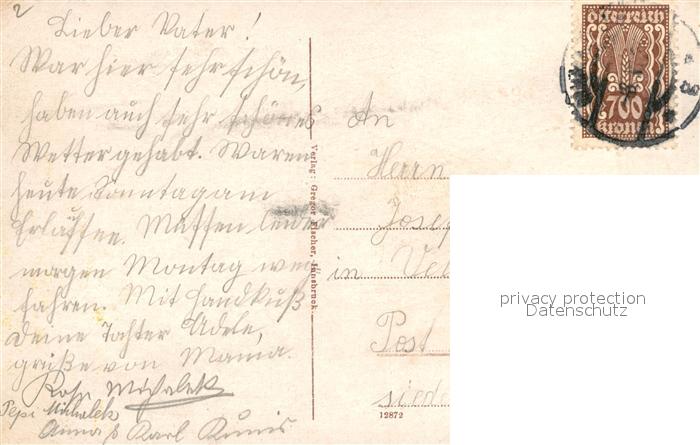 2
Lieber Vater!
War hier sehr schön,
haben auch sehr schönes
Wetter gehabt. Waren
heute Sonntag am
Erlaufsee. Müssen leider
morgen Montag weg
fahren. Mit Handkuß
Deine Tochter Adele,
grüße von Mama.
Michalek
Pepi Michalek
Anna & Karl
An
Herrn
Josef
in
Post
Verlag: Gregor Fischer, Innsbruck.
12872
österreich
700
kronen
privacy protection
Datenschutz